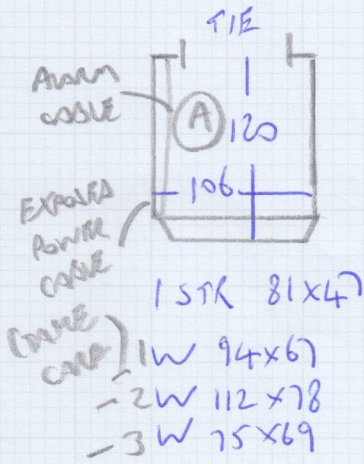 TIE
ALARM
CABLE
A
120
106
EXPOSED
POWER
CABLE
1 STR 81x47
(TAKE
CARE)
1 W 94x67
- 2 W 112x78
- 3 W 75x69